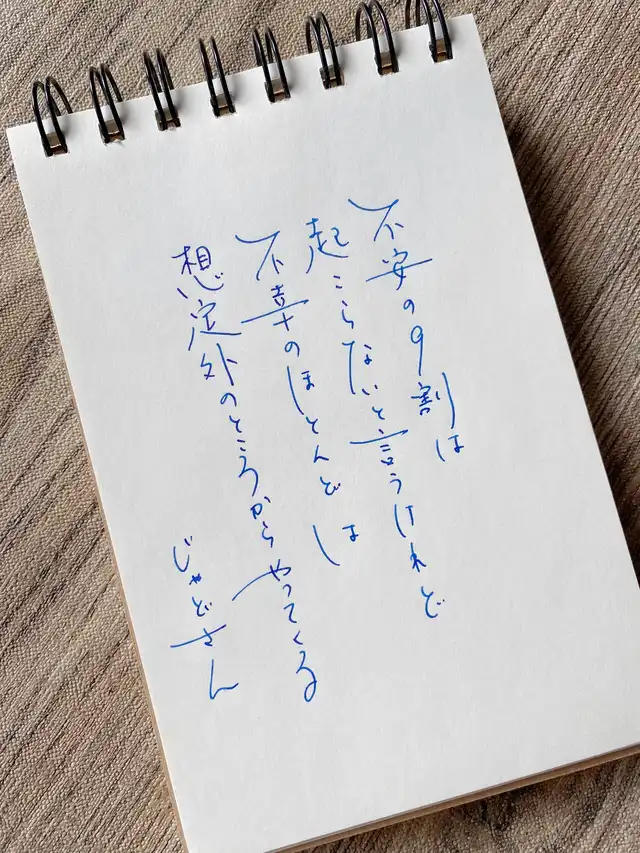 不安の9割は
起こらないと言うけれど
不幸のほとんどは
想定外のところからやってくる
じゃどさん